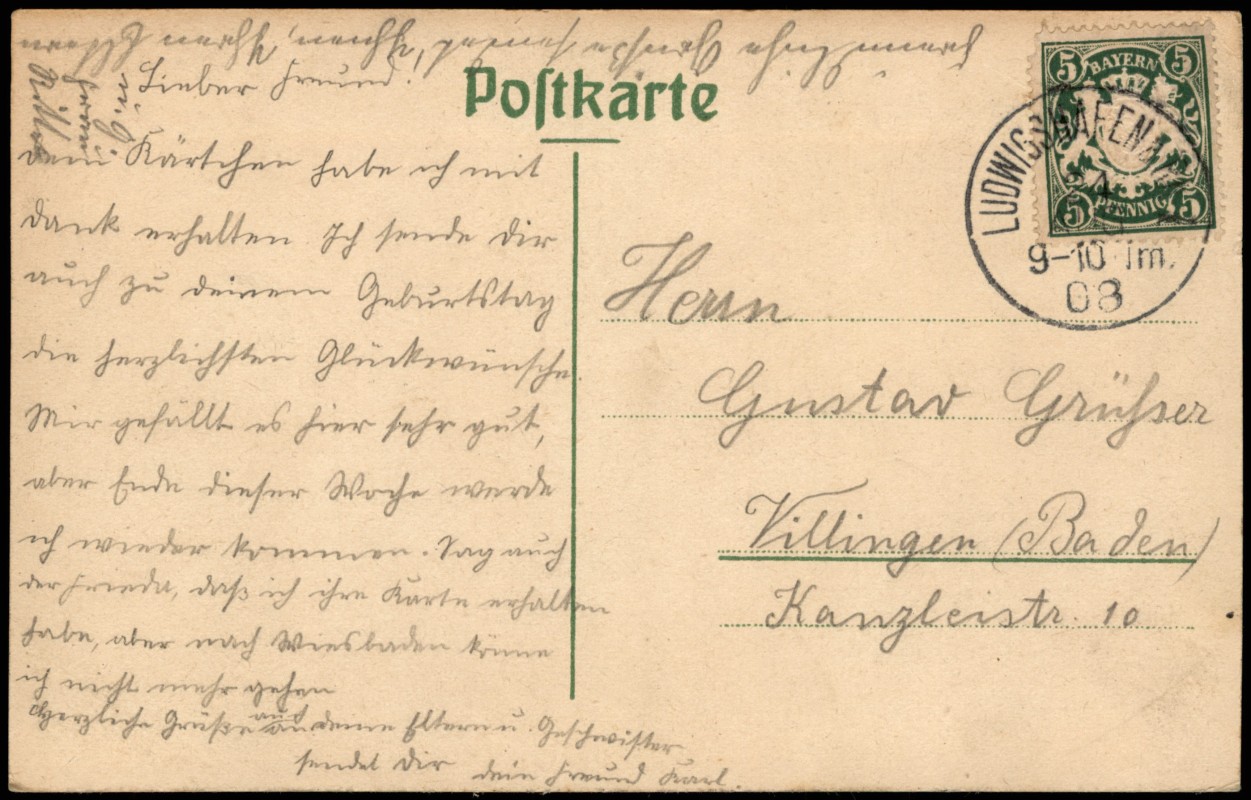 Lieber Freund.
Postkarte
dein Kärtchen habe ich mit
Dank erhalten. Ich sende Dir
auch zu deinem Geburtstag
die herzlichsten Glückwünsche.
Mir gefällt es hier sehr gut,
aber Ende dieser Woche werde
ich wieder kommen. Sag auch
der Frieda, daß ich ihre Karte erhalten
habe, aber nach Wiesbaden könne
ich nicht mehr gehen
Herzliche Grüße auch an deine Eltern u. Geschwister
sendet Dir dein Freund Karl.
BAYERN
5 5
5 PFENNIG 5
LUDWIGSHAFEN
9-10 Vm.
08
Herrn
Gustav Grüßer
Villingen (Baden)
Kanzleistr. 10